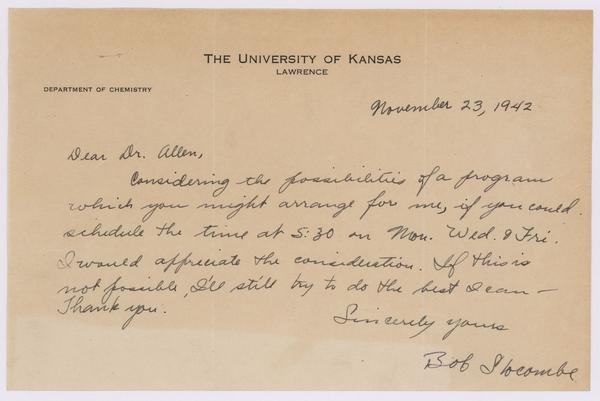 THE UNIVERSITY OF KANSAS
LAWRENCE
DEPARTMENT OF CHEMISTRY
November 23, 1942
Dear Dr. Allen,
Considering the possibilities of a program
which you might arrange for me, if you could
schedule the time at 5:30 on Mon. Wed. & Fri.
I would appreciate the consideration. If this is
not possible, I'll still try to do the best I can —
Thank you.
Sincerely yours
Bob Slocombe